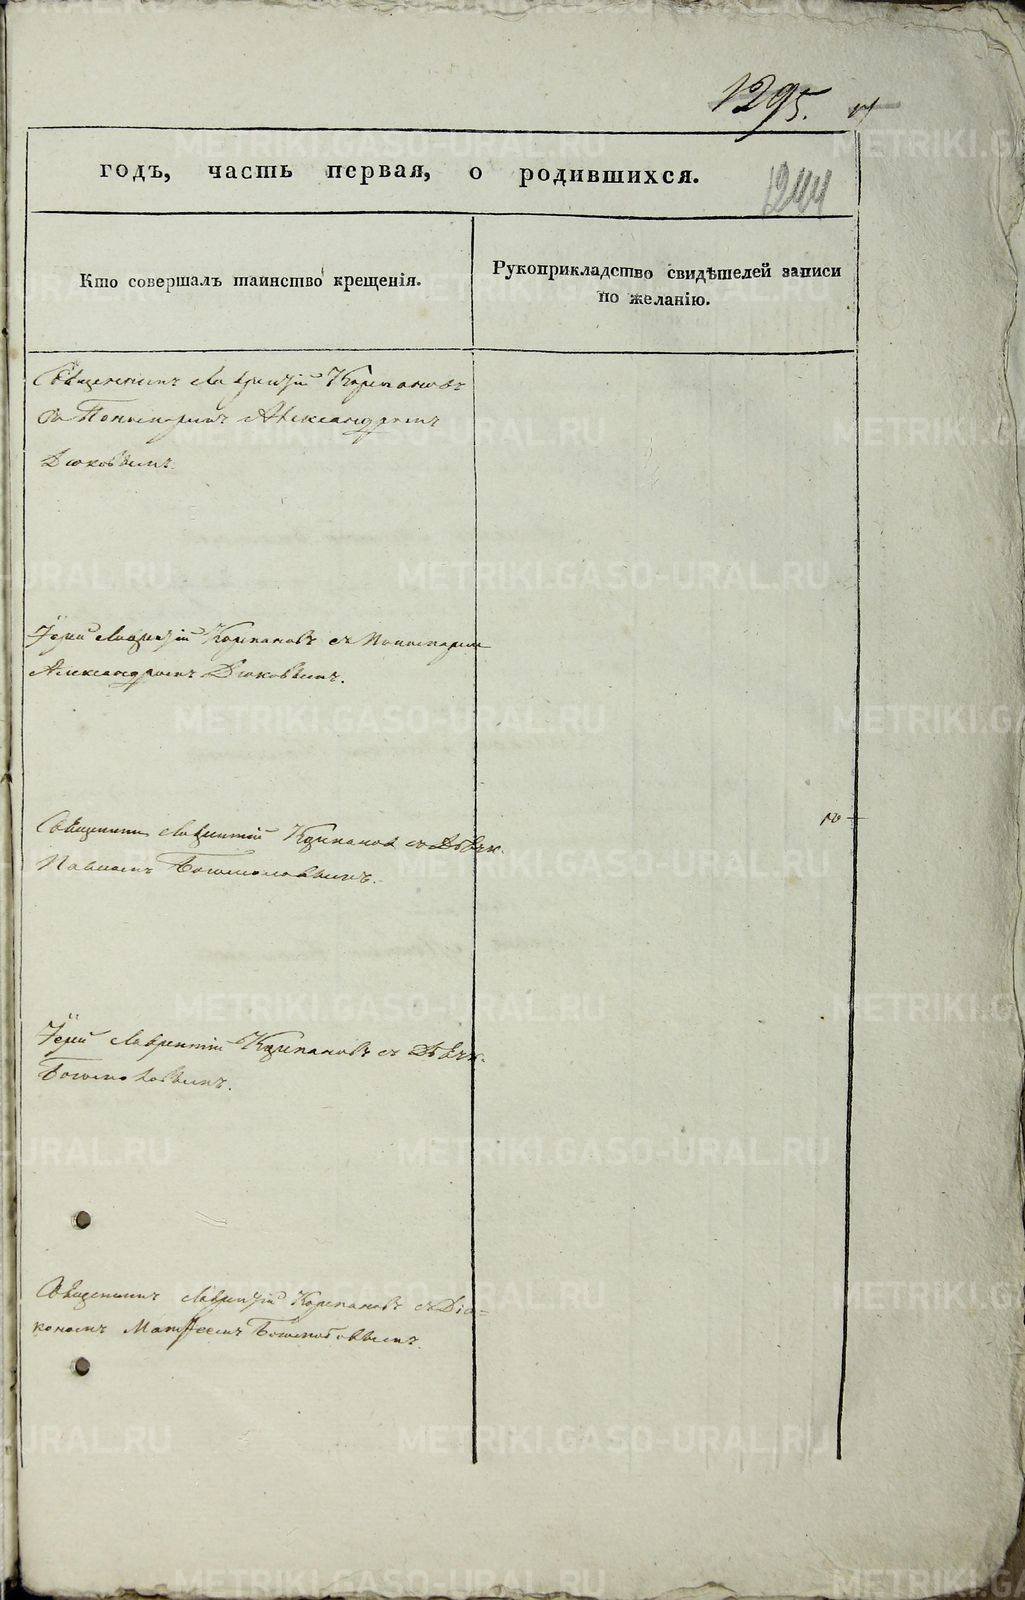 1295.
1244
годъ, часть первая, о родившихся.
Кто совершалъ таинство крещенія.
Рукоприкладство свидѣтелей записи
по желанію.
Священникъ Лаврентій Корепановъ
съ Пономаремъ Александромъ
Дюковымъ.
Іерей Лаврентій Корепановъ съ Пономаремъ
Александромъ Дюковымъ.
Священникъ Лаврентій Корепановъ съ Дьячк.
Павломъ Богомоловымъ.
Іерей Лаврентій Корепановъ съ Дьячк.
Богомоловымъ.
Священникъ Лаврентій Корепановъ съ Діа-
кономъ Матфеемъ
METRIKI.GASO-URAL.RU